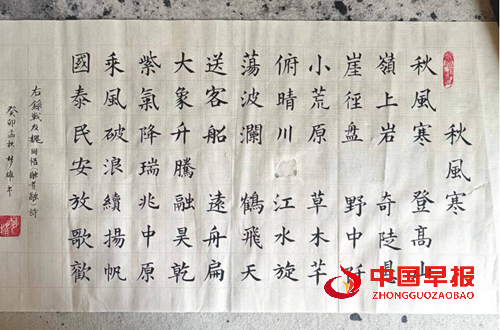 秋風寒
秋風寒 登高山
嶺上岩 奇陡
崖径盘 野中
小荒原 草木芊
俯晴川 江水旋
蕩波瀾 鶴飛天
送客船 遠舟扁
大象升騰融昊乾
紫氣降瑞兆中原
乘風破浪續揚帆
國泰民安放歌歡
右錄戰友魏
癸卯高秋
中国早报
ZHONGGUOZAOBAO